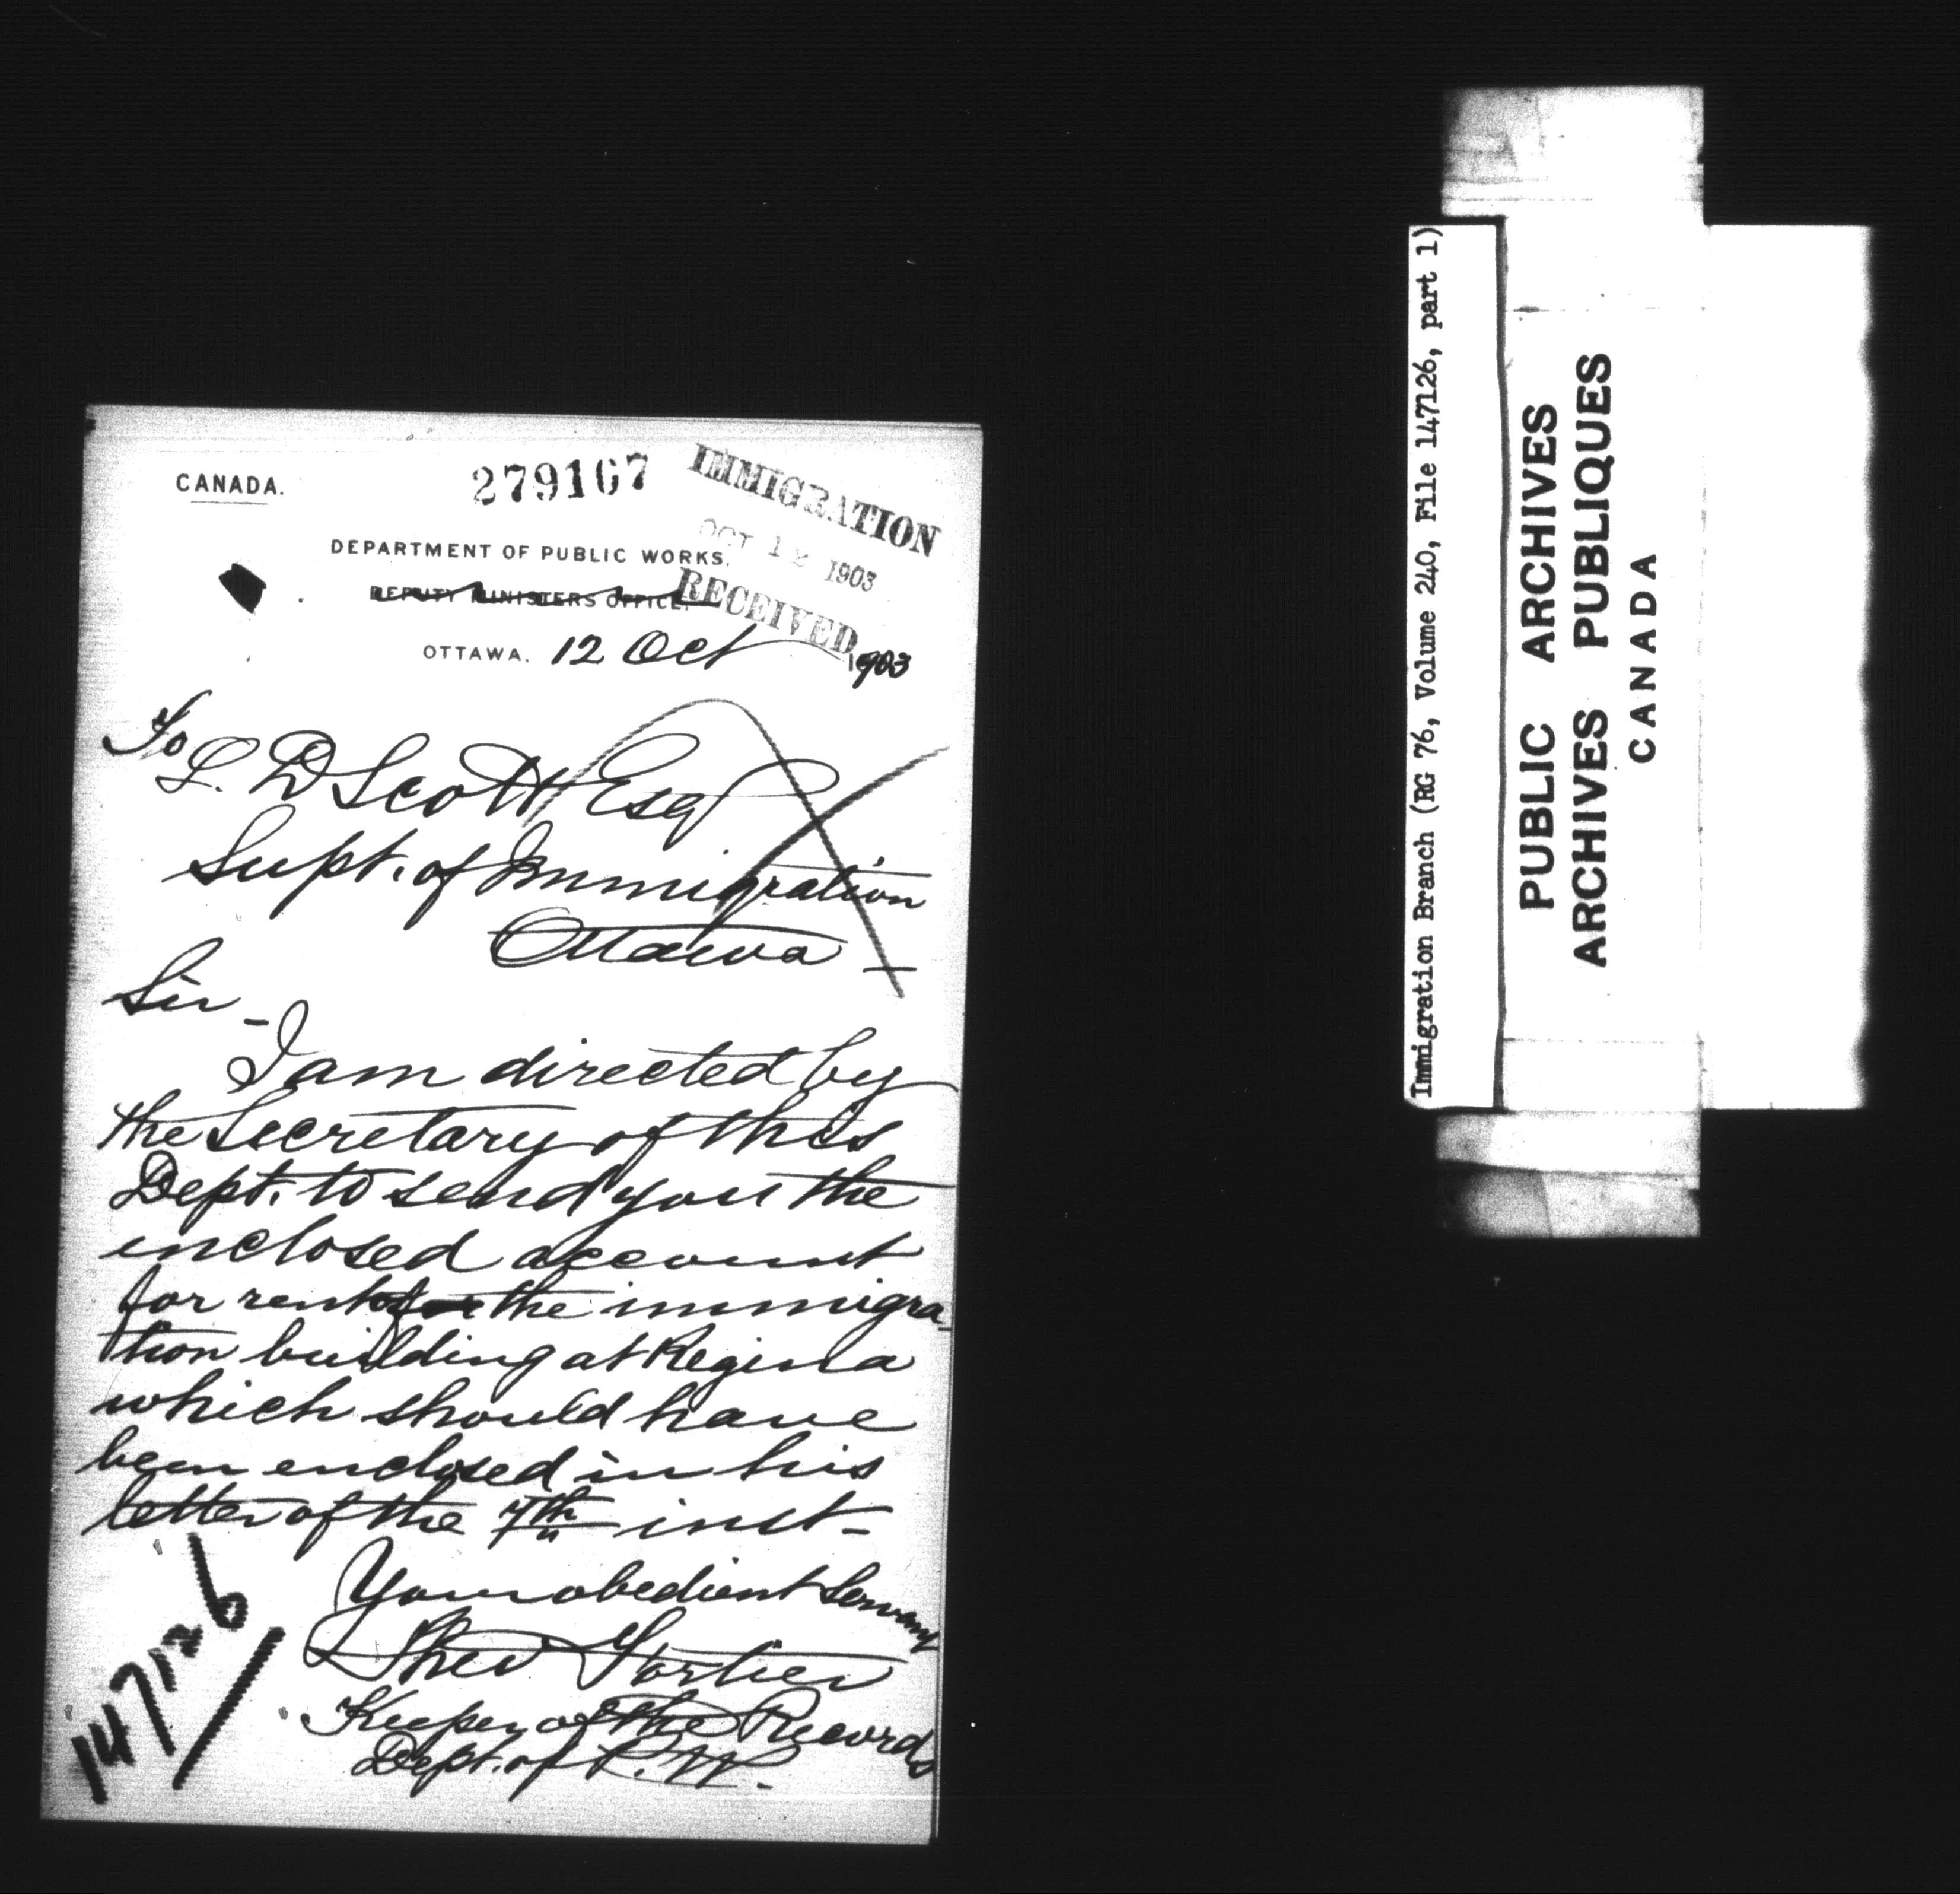 CANADA.
279167
IMMIGRATION
OCT 12 1903
RECEIVED
DEPARTMENT OF PUBLIC WORKS.
DEPUTY MINISTERS OFFICE.
OTTAWA. 12 Oct 1903
To L. D Scott Esq
Supt. of Immigration
Ottawa -
Sir -
I am directed by
the Secretary of this
Dept. to send you the
enclosed account
for rent of the immigra-
tion building at Regina
which should have
been enclosed in his
letter of the 7th inst -
Your obedient Servant
Theo Fortier
Keeper of the Records
Dept. of P. W.
147126
Immigration Branch (RG 76, Volume 240, File 147126, part 1)
PUBLIC ARCHIVES
ARCHIVES PUBLIQUES
CANADA